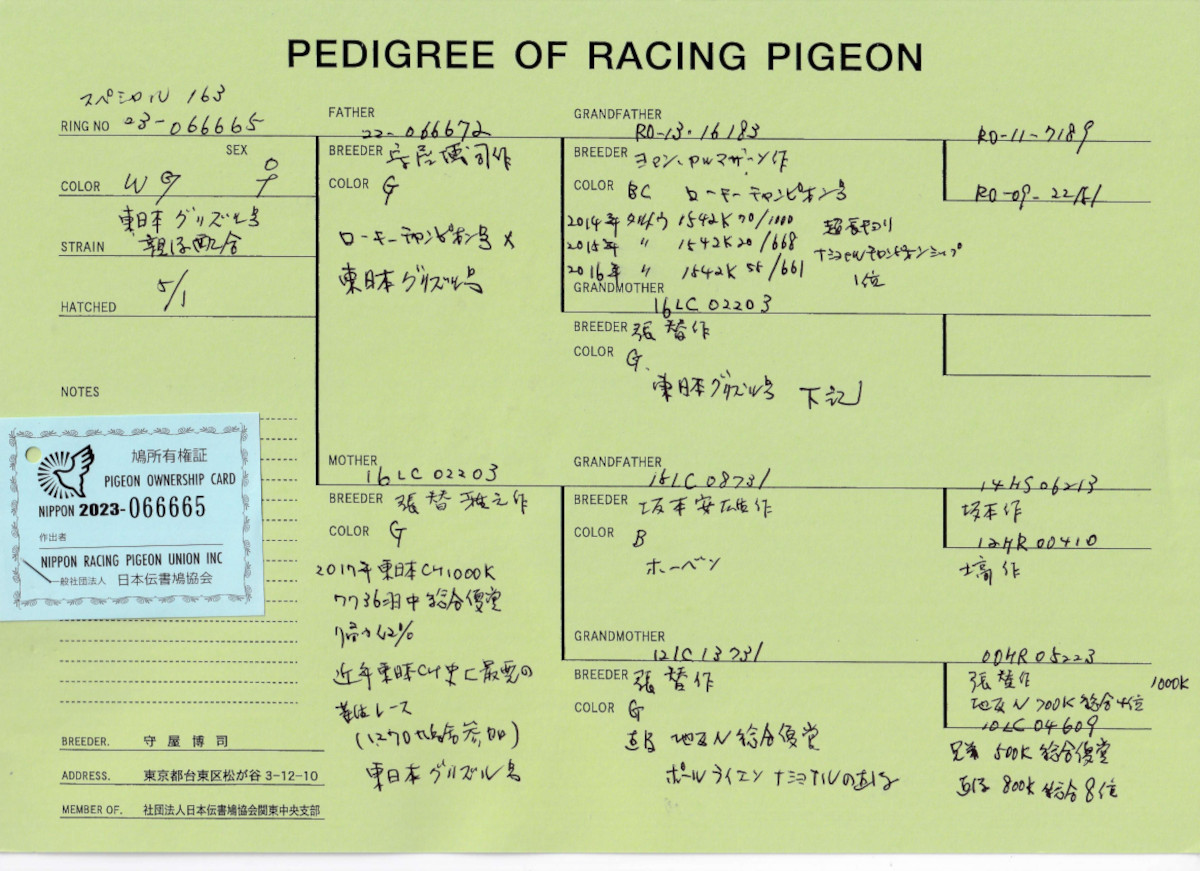 PEDIGREE OF RACING PIGEON
スペシャル 163
RING NO 23-066665
SEX ♀
COLOR W G
東日本グリズル号
STRAIN 親仔配合
HATCHED 5/1
NOTES
鳩所有権証
PIGEON OWNERSHIP CARD
NIPPON 2023-066665
作出者
NIPPON RACING PIGEON UNION INC
一般社団法人 日本伝書鳩協会
BREEDER. 守屋博司
ADDRESS. 東京都台東区松が谷 3-12-10
MEMBER OF. 社団法人日本伝書鳩協会関東中央支部
FATHER
22-066672
BREEDER 守屋博司作
COLOR G
ローキーチャンピオン号 ×
東日本グリズル号
MOTHER
16LC02203
BREEDER 張替雅之作
COLOR G
2017年東日本CH1000K
7736羽中総合優勝
近年東日本CH史上最悪の
レース
(1270鳩舎参加)
東日本グリズル号
GRANDFATHER
RO-13-16183
BREEDER ヨアン・アルマザーン作
COLOR BC ローキーチャンピオン号
2014年 タルトウ 1542K 70/1000 超長切り
2015年 〃 1542K 20/668 ナショナルチャンピオンシップ
2016年 〃 1542K 55/661 1位
GRANDMOTHER
16LC02203
BREEDER 張替作
COLOR G
東日本グリズル号 下記
GRANDFATHER
15LC08731
BREEDER 坂本安雄作
COLOR B
ホーベン
GRANDMOTHER
12LC13731
BREEDER 張替作
COLOR G
直仔 地区N総合優勝
ポールライエンナショナルの直仔
RO-11-7189
RO-09-22151
14HS06213
坂本作
12HR00410
作
00HR05223
張替作 1000K
地区N 700K 総合4位
10LC04609
兄弟 500K 総合優勝
直仔 800K 総合8位